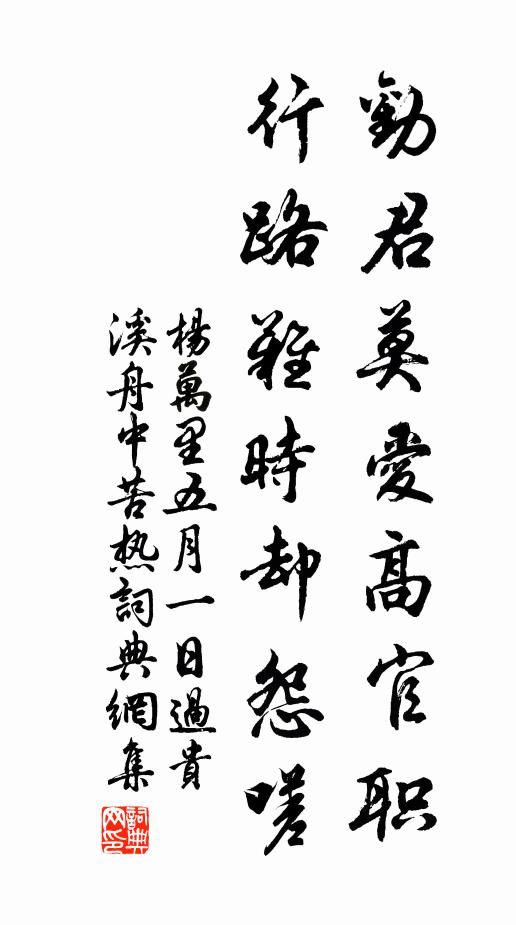 勸君莫愛高官职
行路難時却怨嗟
楊萬里五月一日過貴
溪舟中苦热詞典網集
詞典
网印